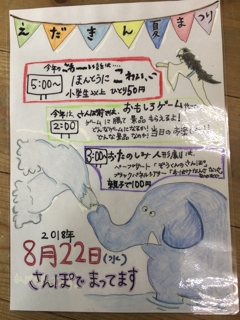 えだきん夏まつり
5:00〜
1まんとうに こわ〜い
小学生以上 ひとり50円
今年は、さんぽ前では、おもしろゲームや
2:00
ゲームに勝って 景品もらえるよ!
どんなゲームになるか?
どんな景品なのか? 当日のお楽しみ!
3:00 おたのしみ人形劇は、
ペープサート「ぞうくんのさんぽ」
親子で100円
2018年
8月22日(水)
さんぽでまってます